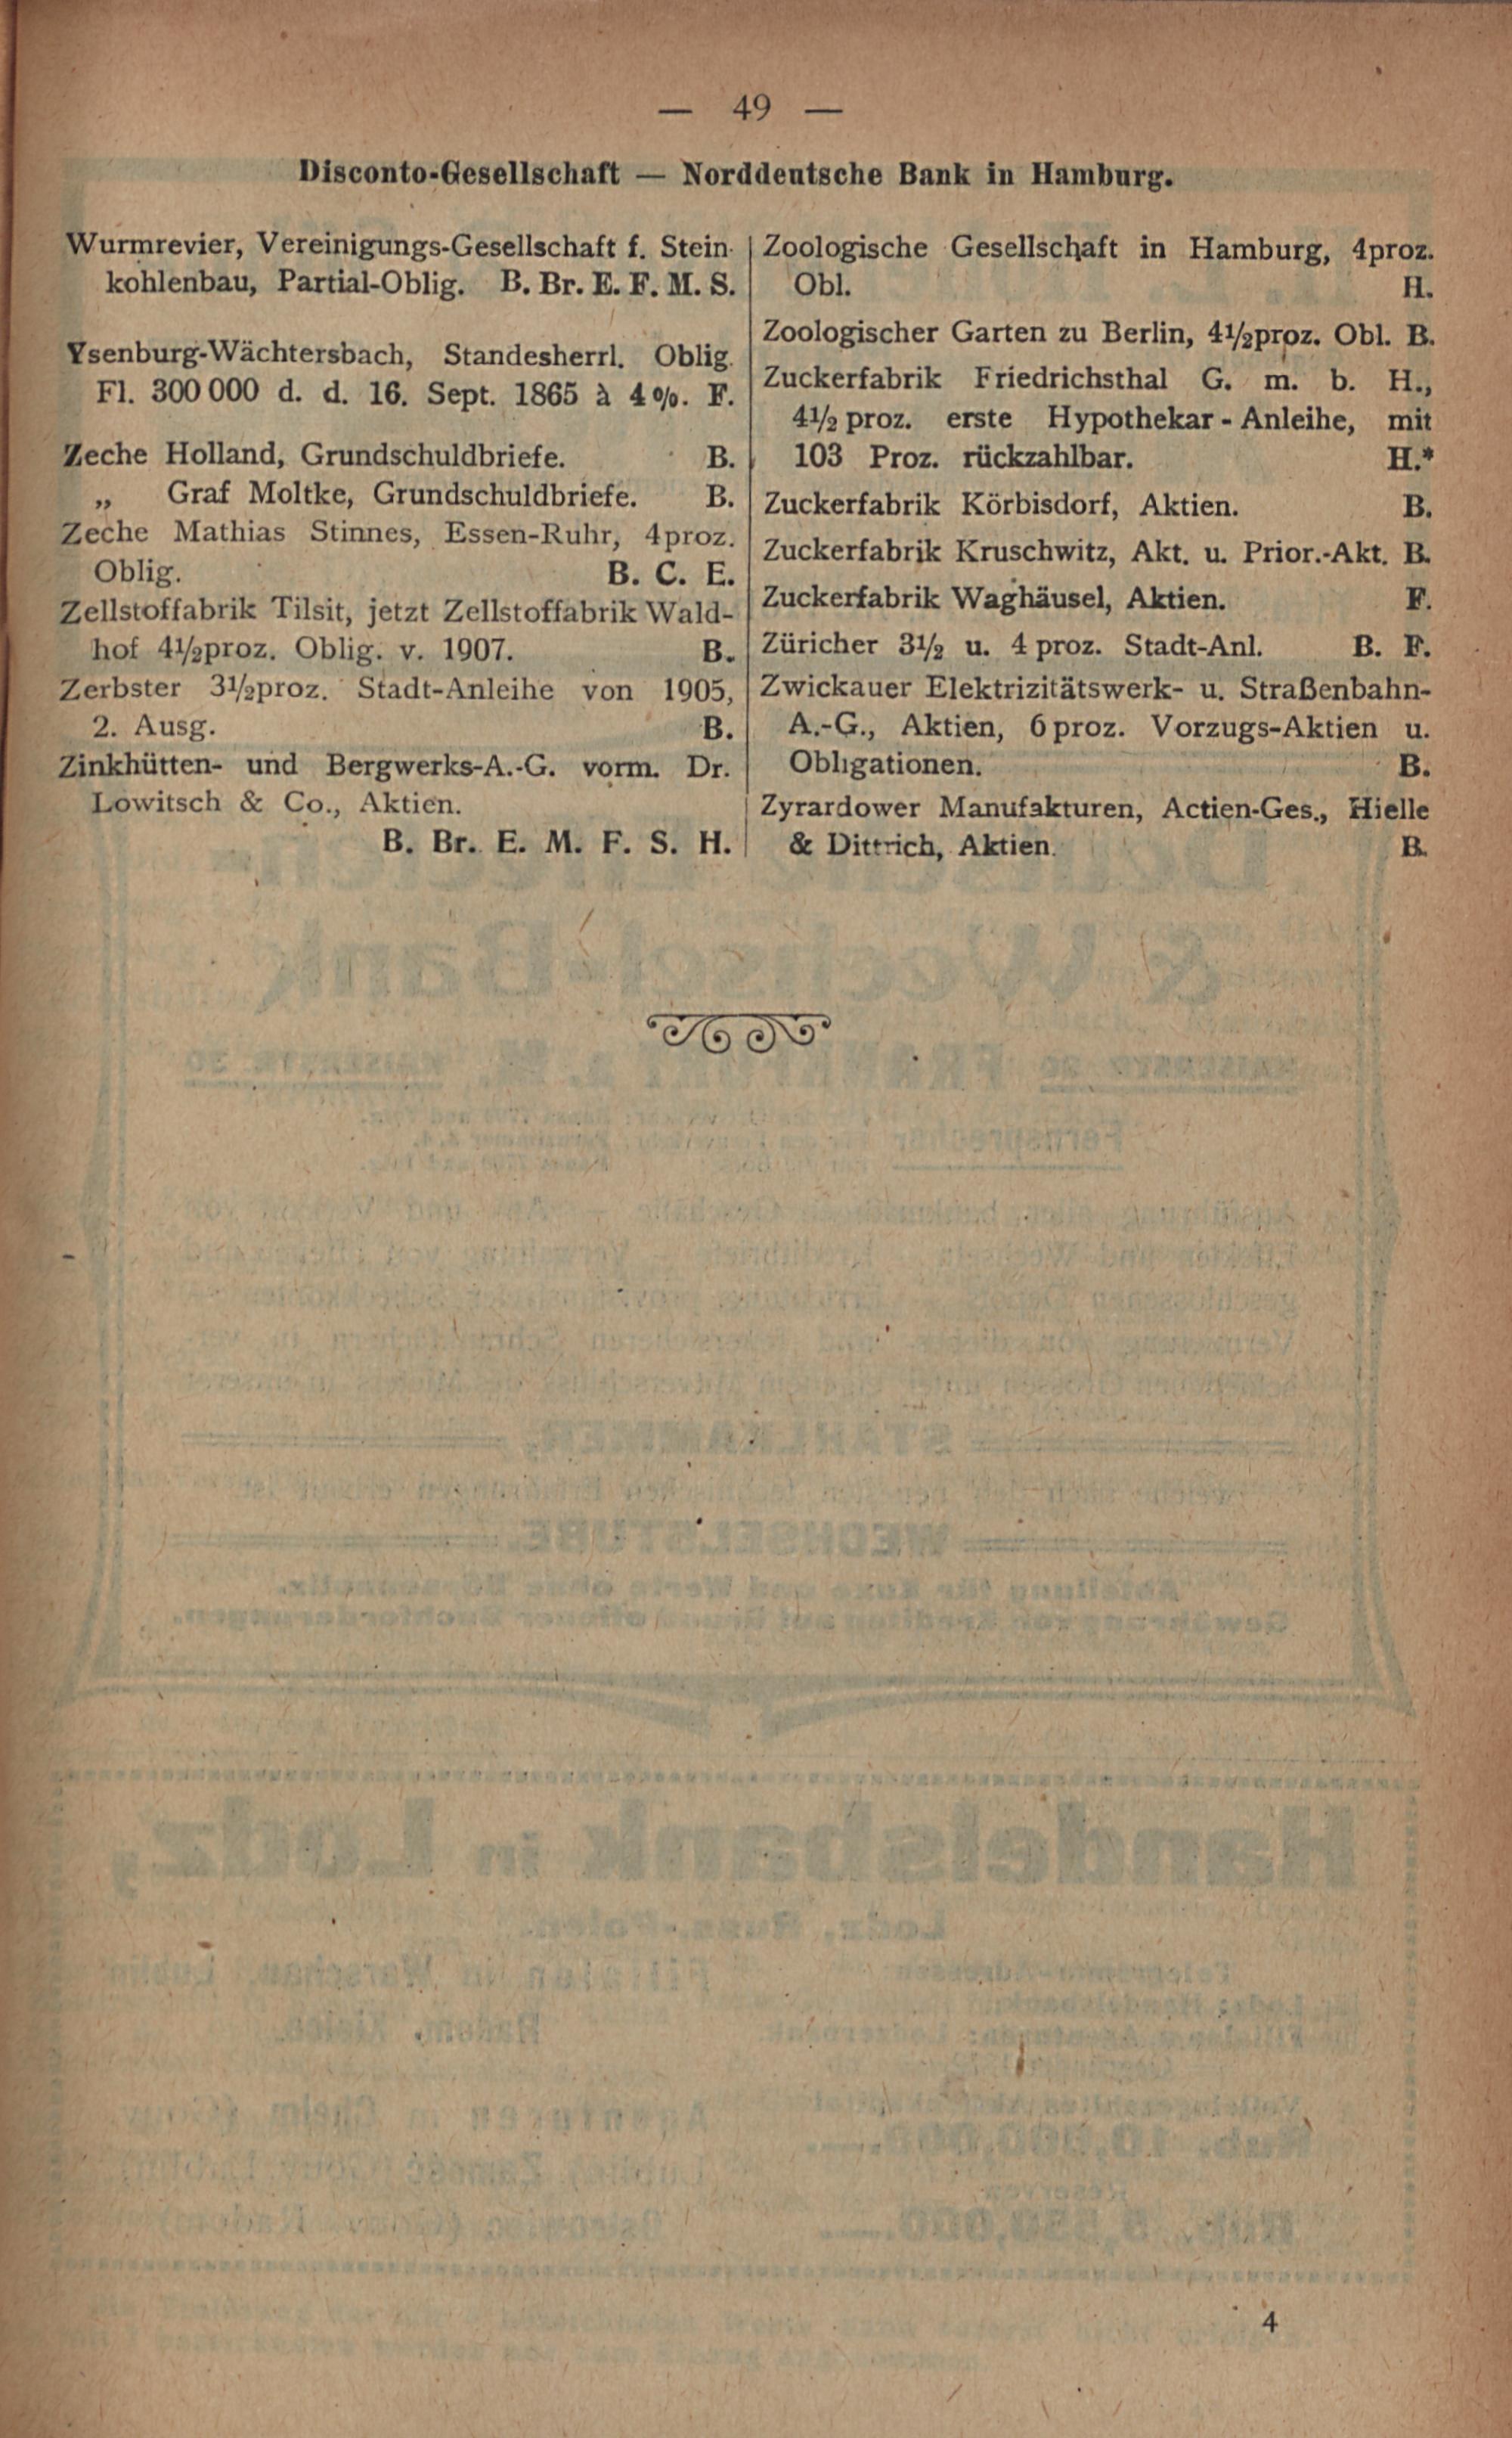 — 49 —
Disconto-Gesellschaft — Norddeutsche Bank in Hamburg.
Wurmrevier, Vereinigungs-Gesellschaft f. Stein-
kohlenbau, Partial-Oblig. B. Br. E. F. M. S.
Ysenburg-Wächtersbach, Standesherrl. Oblig.
Fl. 300 000 d. d. 16. Sept. 1865 à 4 %. F.
Zeche Holland, Grundschuldbriefe. B.
„ Graf Moltke, Grundschuldbriefe. B.
Zeche Mathias Stinnes, Essen-Ruhr, 4proz.
Oblig. B. C. E.
Zellstoffabrik Tilsit, jetzt Zellstoffabrik Wald-
hof 4½proz. Oblig. v. 1907. B.
Zerbster 3½proz. Stadt-Anleihe von 1905,
2. Ausg. B.
Zinkhütten- und Bergwerks-A.-G. vorm. Dr.
Lowitsch & Co., Aktien.
B. Br. E. M. F. S. H.
Zoologische Gesellschaft in Hamburg, 4proz.
Obl. H.
Zoologischer Garten zu Berlin, 4½proz. Obl. B.
Zuckerfabrik Friedrichsthal G. m. b. H.,
4½ proz. erste Hypothekar-Anleihe, mit
103 Proz. rückzahlbar. H.*
Zuckerfabrik Körbisdorf, Aktien. B.
Zuckerfabrik Kruschwitz, Akt. u. Prior.-Akt. B.
Zuckerfabrik Waghäusel, Aktien. F.
Züricher 3½ u. 4 proz. Stadt-Anl. B. F.
Zwickauer Elektrizitätswerk- u. Straßenbahn-
A.-G., Aktien, 6 proz. Vorzugs-Aktien u.
Obligationen. B.
Zyrardower Manufakturen, Actien-Ges., Hielle
& Dittrich, Aktien. B.
4